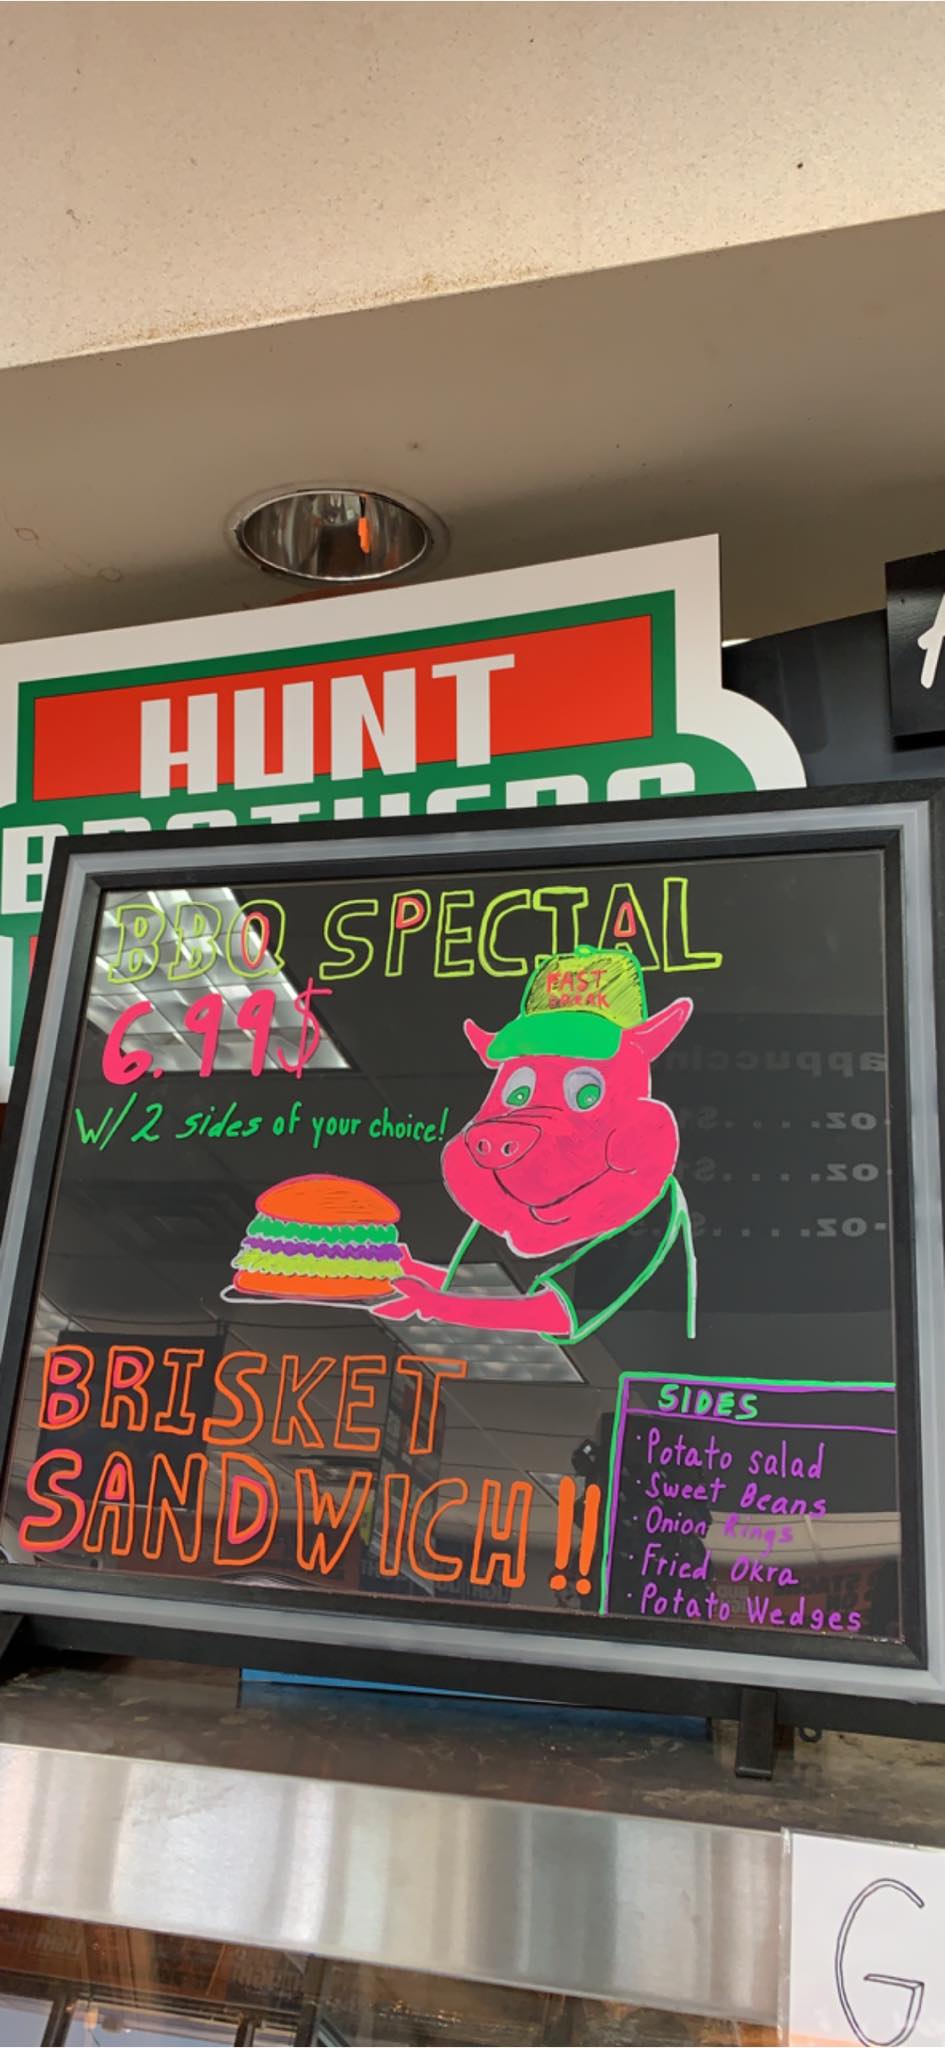 HUNT
BROTHERS
BBQ SPECIAL
6.99$
FAST
BREAK
W/2 sides of your choice!
BRISKET
SANDWICH!!
SIDES
·Potato salad
·Sweet Beans
·Onion Rings
·Fried Okra
·Potato Wedges
G